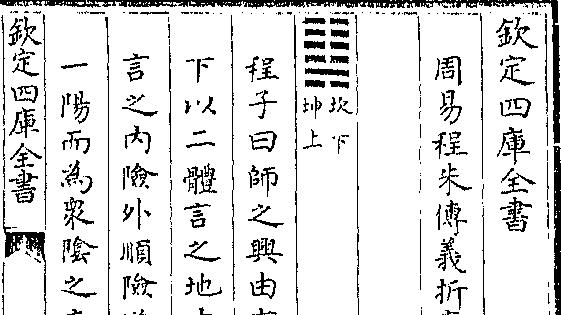 欽定四庫全書
周易程朱傳義折
坎下
坤上
程子曰師之興由
下以二體言之地
言之内險外順險
一陽而為衆陰之
欽定四庫全書